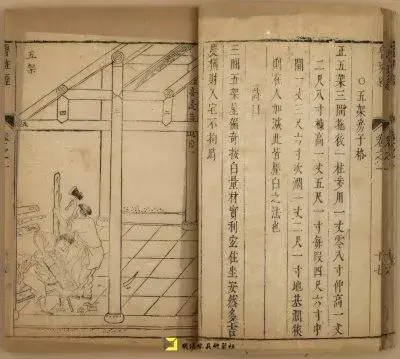 ○五架房子格
正五架三間拖後一柱步用一丈零八寸仲高一丈
二尺八寸棟高一丈五尺一寸每段四尺六寸中
間一丈三尺六寸次濶一丈二尺一寸地基濶狹
則在人加減此皆壓白之法也
詩曰
三間五架屋偏奇按白量材實利宜住坐安然多吉
慶橫財入宅不拘時
五架